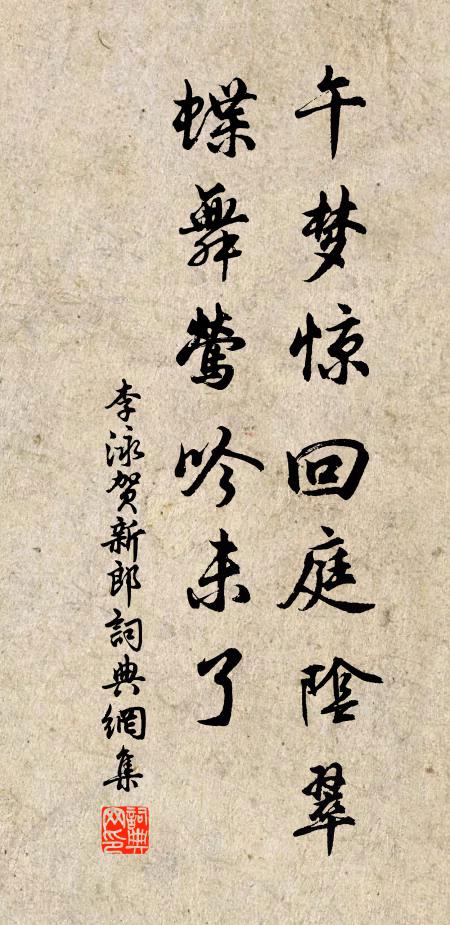 午梦惊回庭陰翠
蝶舞鶯吟未了
李泳贺新郎詞典網集
詞典网印